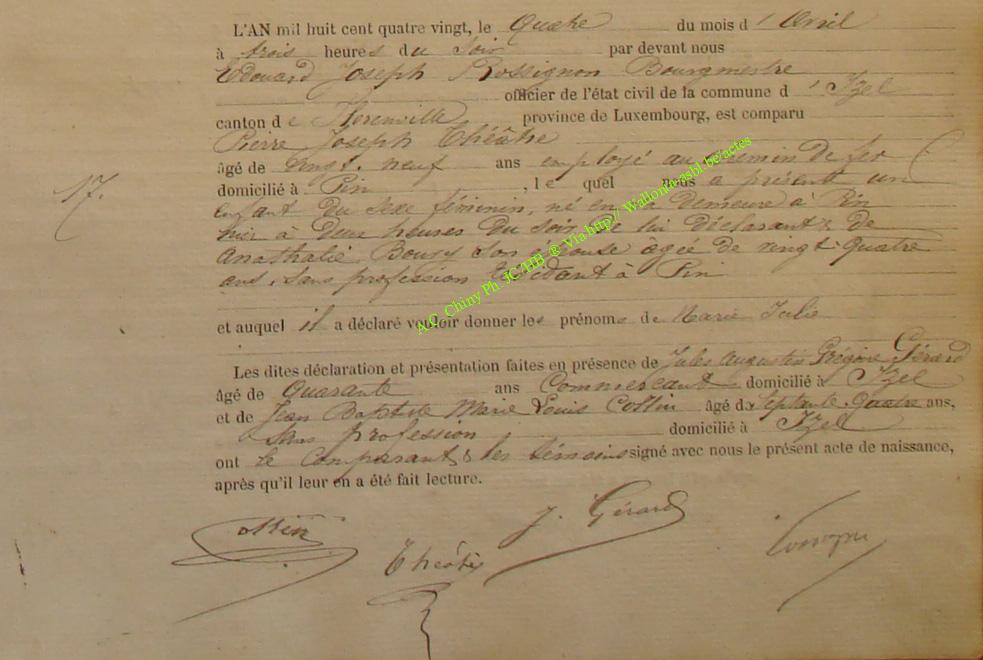 L'AN mil huit cent quatre vingt, le Quatre du mois d'Avril
à trois heures du Soir par devant nous
Edouard Joseph Rossignon Bourgmestre
officier de l'état civil de la commune d'Izel
canton de Florenville province de Luxembourg, est comparu
Pierre Joseph Théâtre
âgé de vingt neuf ans employé au chemin de fer
17.
domicilié à Pin, le quel nous a présenté un
enfant du sexe féminin, né en sa demeure à Pin
hier à deux heures du soir, de lui déclarant & de
Anathalie Boury son épouse agée de vingt-quatre
ans, sans profession résidant à Pin
et auquel il a déclaré vouloir donner les prénoms de Marie Julie
Les dites déclaration et présentation faites en présence de Jules Auguste Grégoire Gérard
âgé de Quarante ans Commercant domicilié à Izel
et de Jean Baptiste Marie Louis Collin âgé de Septante Quatre ans,
Sans profession domicilié à Izel
ont le Comparant & les témoins signé avec nous le présent acte de naissance,
après qu'il leur en a été fait lecture.
Collin
J. Gérard
Théâtre
A.C. Chiny Ph. JC HB ® Via http// Wallonie.asbl.be/actes